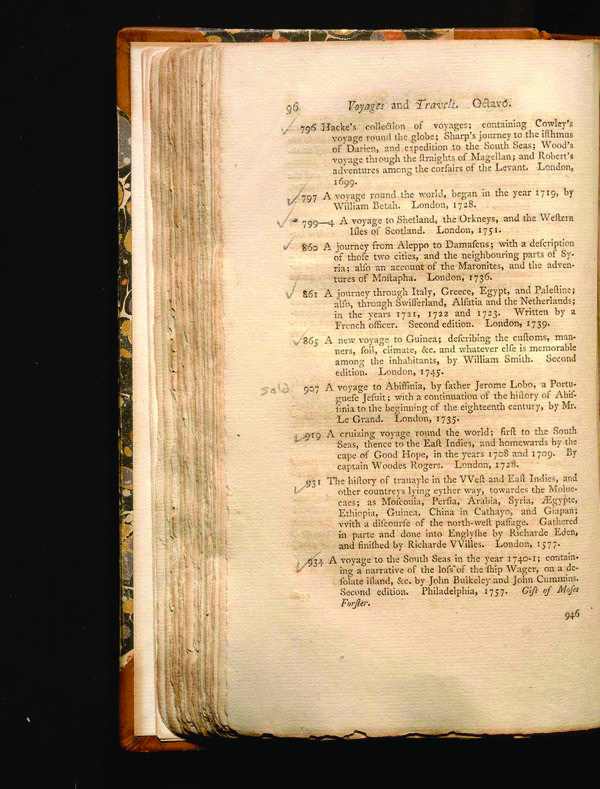 96 Voyages and Travels. Octavo.
✓ 796 Hacke's collection of voyages; containing Cowley's
voyage round the globe; Sharp's journey to the isthmus
of Darien, and expedition to the South Seas; Wood's
voyage through the straights of Magellan; and Robert's
adventures among the corsairs of the Levant. London,
1699.
✓ 797 A voyage round the world, began in the year 1719, by
William Betah. London, 1728.
✓ 799—4 A voyage to Shetland, the Orkneys, and the Western
Isles of Scotland. London, 1751.
✓ 860 A journey from Aleppo to Damascus; with a description
of those two cities, and the neighbouring parts of Sy-
ria; also an account of the Maronites, and the adven-
tures of Mostapha. London, 1736.
✓ 861 A journey through Italy, Greece, Egypt, and Palestine;
also, through Swisserland, Alsatia and the Netherlands;
in the years 1721, 1722 and 1723. Written by a
French officer. Second edition. London, 1739.
✓ 865 A new voyage to Guinea; describing the customs, man-
ners, soil, climate, &c. and whatever else is memorable
among the inhabitants, by William Smith. Second
edition. London, 1745.
sold 907 A voyage to Abissinia, by father Jerome Lobo, a Portu-
guese Jesuit; with a continuation of the history of Abis-
sinia to the beginning of the eighteenth century, by Mr.
Le Grand. London, 1735.
✓ 919 A cruizing voyage round the world; first to the South
Seas, thence to the East Indies, and homewards by the
cape of Good Hope, in the years 1708 and 1709. By
captain Woodes Rogers. London, 1728.
✓ 931 The history of trauayle in the VVest and East Indies, and
other countreys lying eyther way, towardes the Moluc-
caes; as Moscouia, Persia, Arabia, Syria, Ægypte,
Ethiopia, Guinea, China in Cathayo, and Giapan;
vvith a discourse of the north-west passage. Gathered
in parte and done into Englyshe by Richarde Eden,
and finished by Richarde VVilles. London, 1577.
✓ 934 A voyage to the South Seas in the year 1740-1; contain-
ing a narrative of the loss of the ship Wager, on a de-
solate island, &c. by John Bulkeley and John Cummins.
Second edition. Philadelphia, 1757. Gift of Moses
Forster.
946